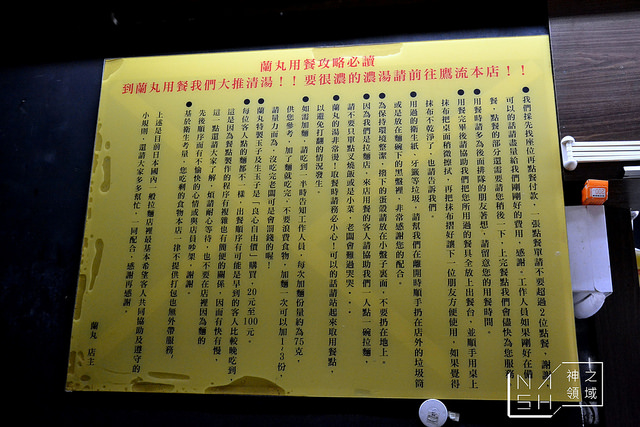 蘭丸用餐攻略必讀
到蘭丸用餐我們大推清湯！！要很濃的濃湯請前往鷹流本店！！
●我們採先找座位再點餐付款，一張點餐單請不要超過2位點餐，謝謝
可以的話請盡量給我們剛剛好的費用，感謝。工作人員如果剛好在備
餐，點餐的部分還需要請您稍後一下，上完餐點我們會儘快為您服務
●用餐時請多為後面排隊的朋友著想，請留意您的用餐時間。
●用餐完畢後請協助我們把您所用過的餐具全放上出餐台，並順手用桌上
抹布把桌面稍微擦拭，再把抹布摺好讓下一位朋友方便使用，如果覺得
抹布不乾淨了，也請告訴我們。
●用過的衛生紙、牙籤等垃圾，請幫我們在離開時順手扔在店外的垃圾筒
或是放在麵碗下的黑盤裡，非常感謝您的配合。
●為保持環境整潔，撥下的蛋殼請放在小盤子裏面，不要扔在地上。
●因為我們是拉麵店，來店用餐的客人請協助我們一人點一碗拉麵，
請不要只單點叉燒飯或是小菜，老闆會難過哭哭．．．
●蘭丸的湯非常燙！取餐時請務必小心！可以的話請站起來取用餐點，
以避免打翻的情況發生。
●如需加麵，請吃到一半時告知工作人員，每次加麵份量約為75克，
供您參考，加了麵就吃完，不要浪費食物，加麵一次可以加1/3份，
請量力而為，沒吃完老闆可是會罰錢的喔！
●蘭丸特製玉子及生玉子是「良心自由價」購買，20元至100元。
●每位客人點的麵都不一樣，出餐順序有可能是早到的客人比較晚吃到
這是因為餐點製作的程序有複雜也有簡便的關係，因而有快有慢，
這一點還請大家了解，煩請耐心等待，也不要在店裡因為麵的
先後順序而有不愉快的心情或與店員吵架，謝謝。
●基於衛生考量，您吃剩的食物本店一律不提供打包也無外帶服務，
上述是目前日本國內一般拉麵店裡最基本希望客人共同協助及遵守的
小規則，還請大家多多幫忙，一同配合，感謝再感謝。
蘭丸 店主
NASH
神之領域